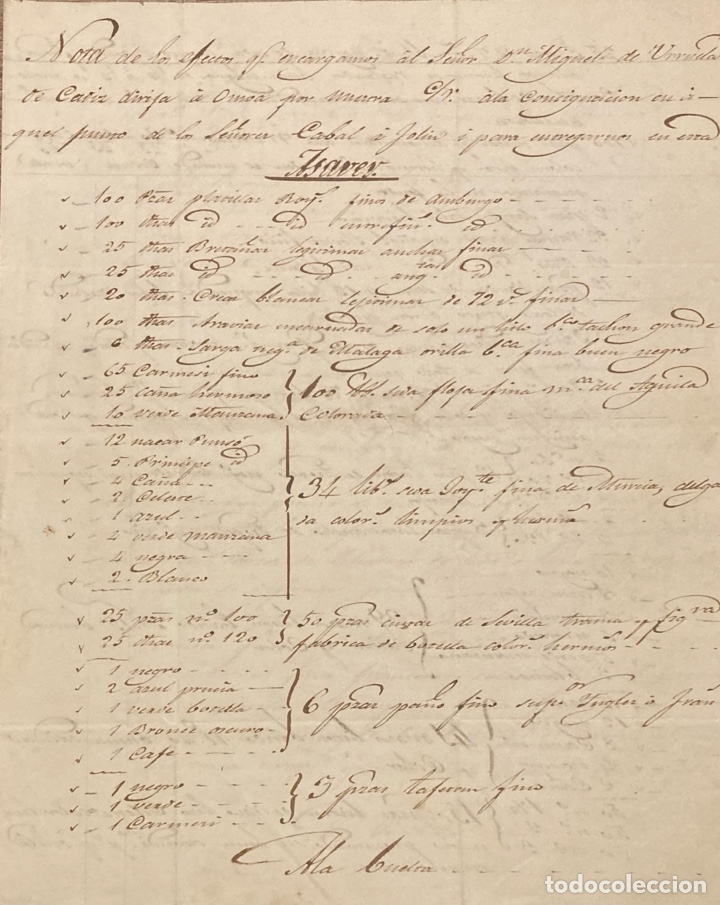 Nota de los efectos q.e encargamos al Señor Dn Miguel de Urruela
de Cadiz dirija à Omoa por nuestra c/r. ala consignacion en à-
quel punto de los Señores Cabal à Jolin i para entregarnos en esta
Asaver.
100 Pzas platillas Roy.s finas de Amburgo
100 thas id id entrefin.s id
25 thas Bretañas legitimas anchas finas
25 thas id id ang.tas id
20 thas Creas blancas legitimas de 72 v.s finas
100 thas Aravias encarnadas de solo un hilo b.co tachon grande
6 thas Sarga neg.a de Malaga orilla b.ca fina buen negro
65 Carmesi fino
25 caña hermoso 100 lb.s seda floja fina m.ca del Aguila
10 verde Manzana colorada
12 nacar Punsó
5 Principe id
4 Caña
2 Celeste 34 lib.s seda Joy.te fina de Murcia, delga
1 azul da color.s limpios y hermo.s
4 verde manzana
4 negra
2 Blanco
25 pzas n.o 100 50 pzas cintas de Sevilla trama y fig.ra
25 thas n.o 120 fabrica de bozella color.s hermo.s
1 negro
2 azul prucia
1 verde botella 6 pzas paño fino sup.or Yngles ò Fran
1 Bronce oscuro
1 Cafe
1 negro
1 verde 3 pzas tafetan fino
1 Carmesi
Ala buelta
todocoleccion